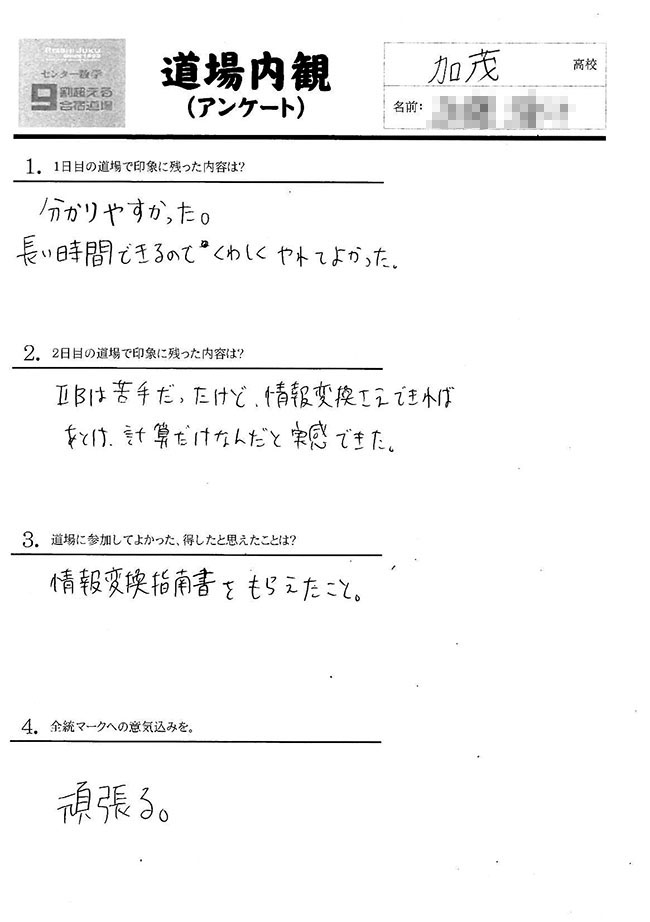 センター数学
9割超える
合宿道場
道場内観
(アンケート)
加茂 高校
名前:
1. 1日目の道場で印象に残った内容は?
分かりやすかった。
長い時間できるので くわしく やれてよかった。
2. 2日目の道場で印象に残った内容は?
ⅡBは苦手だったけど、情報変換さえできれば
あとは、計算だけなんだと実感できた。
3. 道場に参加してよかった、得したと思えたことは?
情報変換指南書をもらえたこと。
4. 全統マークへの意気込みを。
頑張る。